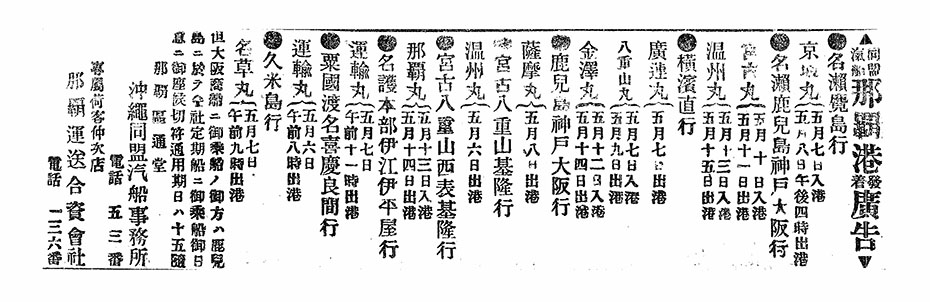 ▲同盟汽船那覇港発着廣告▼
●名瀨鹿兒島行
京城丸 五月七日入港 五月八日午後四時出港
●名瀨鹿兒島神戸大阪行
宮古丸 五月十日入港 五月十一日出港
温州丸 五月十三日入港 五月十五日出港
●横濱直行
廣運丸 五月七日出港
八重山丸 五月七日入港 五月九日出港
金澤丸 五月十二日入港 五月十四日出港
●鹿兒島神戸大阪行
薩摩丸 五月八日出港
●宮古八重山基隆行
温州丸 五月六日出港
●宮古八重山西表基隆行
那覇丸 五月十三日入港 五月十四日出港
●名護本部伊江伊平屋行
運輸丸 五月七日 午前十一時出港
●粟國渡名喜慶良間行
運輸丸 五月六日 午前八時出港
●久米島行
名草丸 五月七日 午前九時出港
但大阪商船ニ御乘船ノ御方ハ鹿兒
島ニ於テ全社定期船ニ御乘船御日
意ニ御座候切符通用期日ハ十五日
那覇區通堂
沖繩同盟汽船事務所
電話 五三番
專屬荷客仲次店
那覇運送合資會社
電話 二三六番